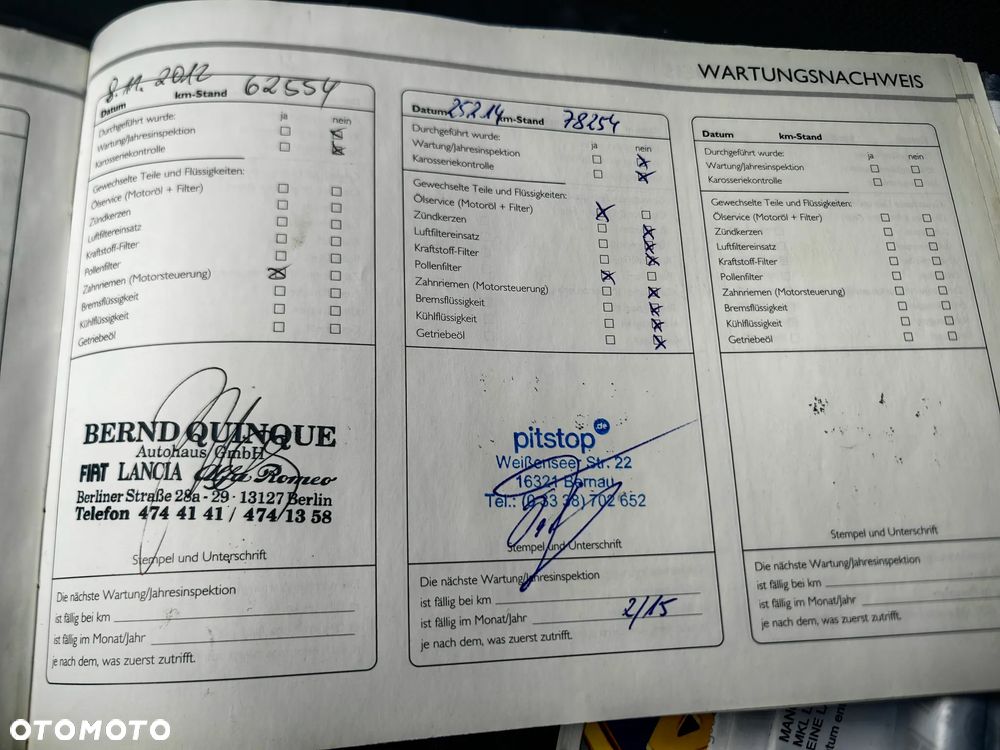 WARTUNGSNACHWEIS
8.11.2012 62554
Datum km-Stand
Durchgeführt wurde: ja nein
Wartung/Jahresinspektion
Karosseriekontrolle
Gewechselte Teile und Flüssigkeiten:
Ölservice (Motoröl + Filter)
Zündkerzen
Luftfiltereinsatz
Kraftstoff-Filter
Pollenfilter
Zahnriemen (Motorsteuerung)
Bremsflüssigkeit
Kühlflüssigkeit
Getriebeöl
BERND QUINQUE
Autohaus GmbH
FIAT LANCIA Alfa Romeo
Berliner Straße 28a - 29 · 13127 Berlin
Telefon 474 41 41 / 474 13 58
Stempel und Unterschrift
Die nächste Wartung/Jahresinspektion
ist fällig bei km
ist fällig im Monat/Jahr
je nach dem, was zuerst zutrifft.
Datum 25214 km-Stand 78254
Durchgeführt wurde: ja nein
Wartung/Jahresinspektion
Karosseriekontrolle
Gewechselte Teile und Flüssigkeiten:
Ölservice (Motoröl + Filter)
Zündkerzen
Luftfiltereinsatz
Kraftstoff-Filter
Pollenfilter
Zahnriemen (Motorsteuerung)
Bremsflüssigkeit
Kühlflüssigkeit
Getriebeöl
pitstop.de
Weißenseer Str. 22
16321 Bernau
Tel.: (0 33 38) 702 652
Stempel und Unterschrift
Die nächste Wartung/Jahresinspektion
ist fällig bei km
ist fällig im Monat/Jahr 2/15
je nach dem, was zuerst zutrifft.
Datum km-Stand
Durchgeführt wurde: ja nein
Wartung/Jahresinspektion
Karosseriekontrolle
Gewechselte Teile und Flüssigkeiten:
Ölservice (Motoröl + Filter)
Zündkerzen
Luftfiltereinsatz
Kraftstoff-Filter
Pollenfilter
Zahnriemen (Motorsteuerung)
Bremsflüssigkeit
Kühlflüssigkeit
Getriebeöl
Stempel und Unterschrift
Die nächste Wartung/Jahresinspektion
ist fällig bei km
ist fällig im Monat/Jahr
je nach dem, was zuerst zutrifft.
OTOMOTO